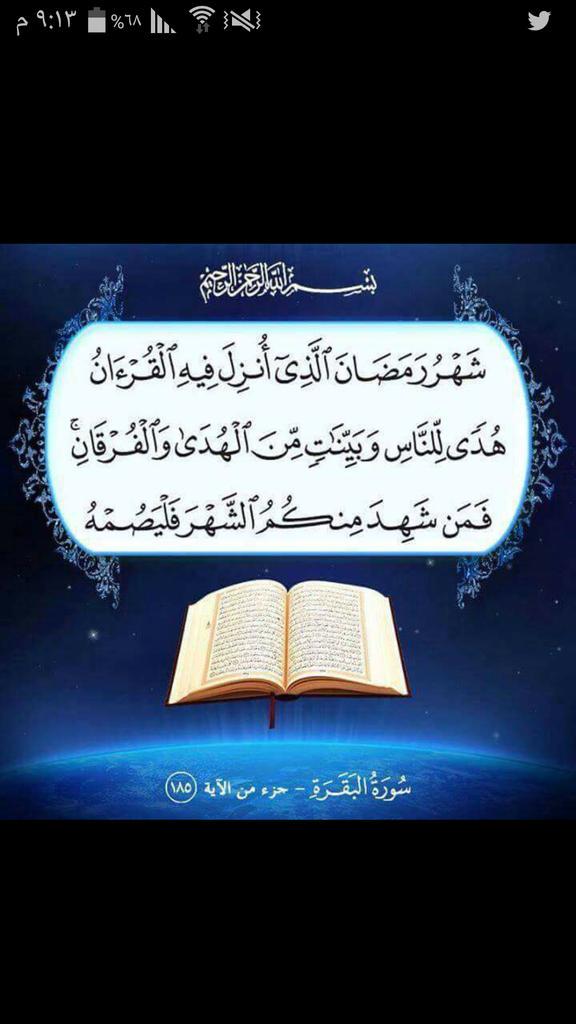 ٩:١٣ م %٦٨
بِسْمِ اللَّهِ الرَّحْمَٰنِ الرَّحِيمِ
شَهْرُ رَمَضَانَ ٱلَّذِىٓ أُنزِلَ فِيهِ ٱلْقُرْءَانُ
هُدًى لِّلنَّاسِ وَبَيِّنَٰتٍ مِّنَ ٱلْهُدَىٰ وَٱلْفُرْقَانِ ۚ
فَمَن شَهِدَ مِنكُمُ ٱلشَّهْرَ فَلْيَصُمْهُ
سُورَةُ البَقَرَةِ - جزء من الآية ١٨٥